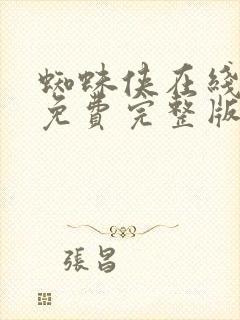 蜘蛛侠在綫
免費完整版
張昌